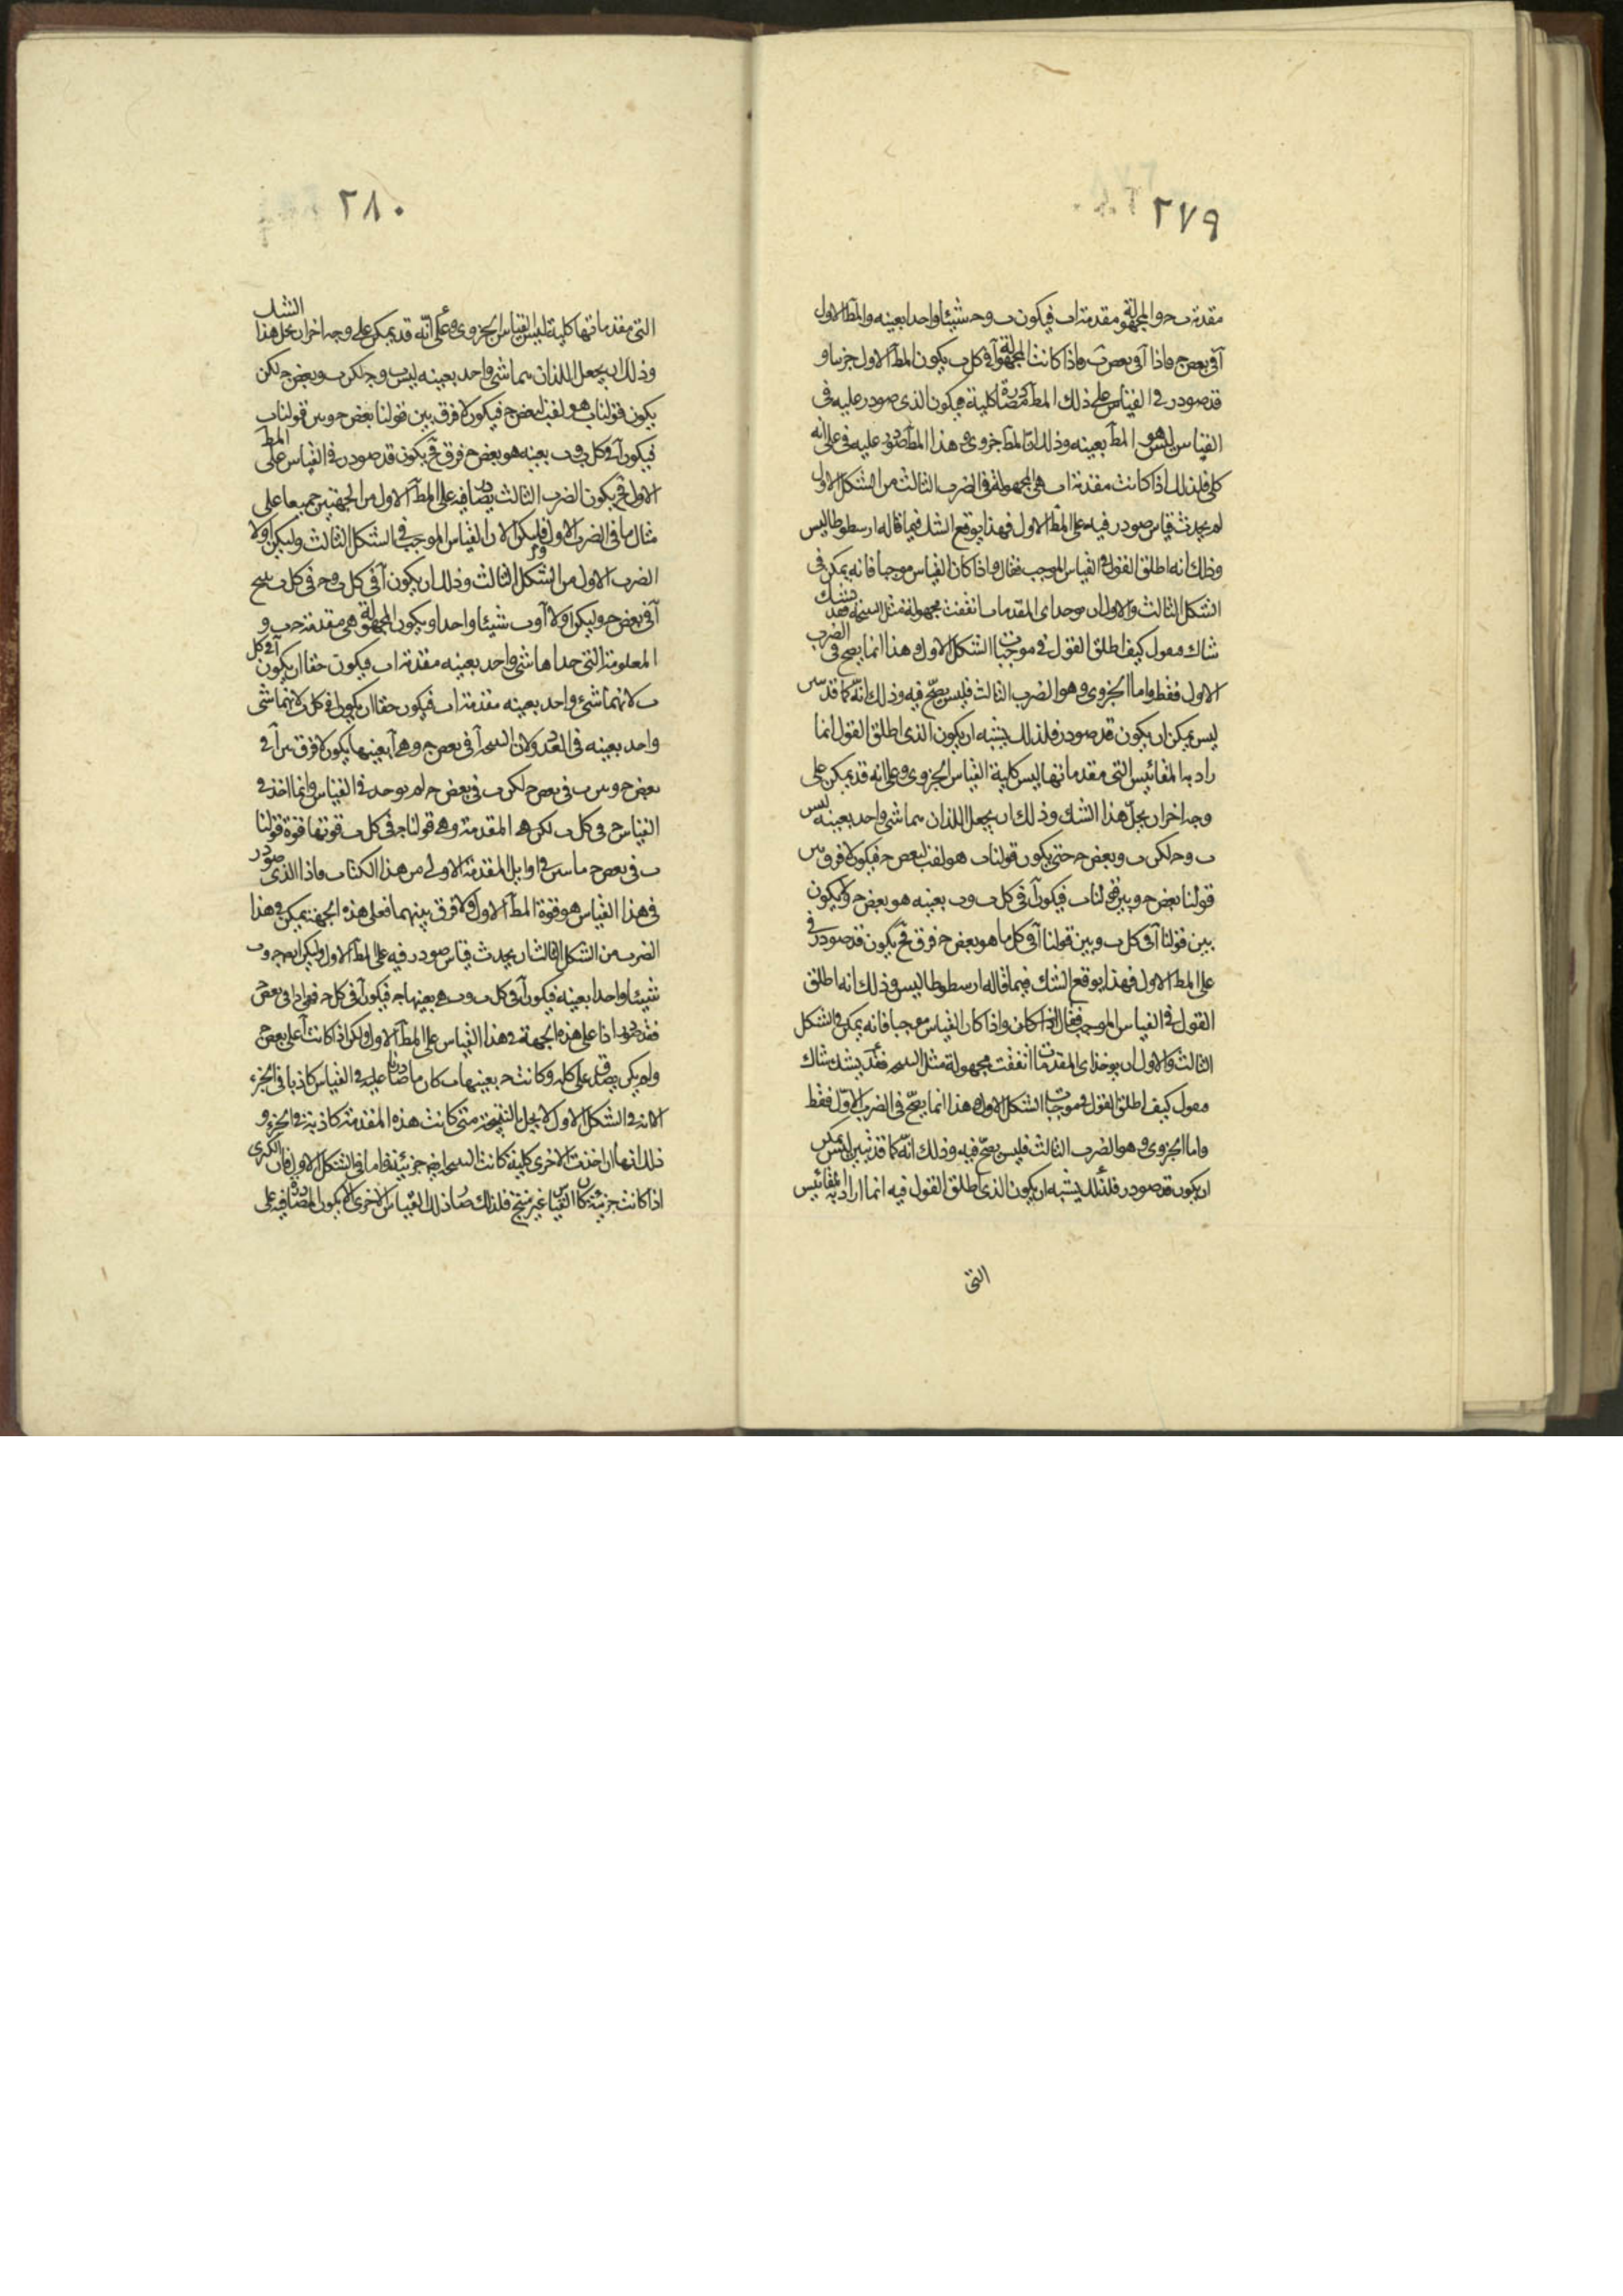 ٢٧٩
مقدمة ب ح والمجهولة مقدمة ا ب فيكون ب وح شيئا واحدا بعينه والمط الاول
آ في بعض ح فاذا آ في بعض ب واذا كانت المجهولة آ في كل ب يكون المط الاول جزيا و
قد صودر في القياس على ذلك المط مصادرة كلية فيكون الذي صودر عليه في
القياس ليس هو المط بعينه وذلك ان المط جزوى وهذا المط صودر عليه في على انه
كلي فلذلك اذا كانت مقدمة ا ب هي المجهولة في الضرب الثالث من الشكل الاول
لم يحدث قياس صودر فيه على المط الاول فهذا يوقع الشك فيما قاله ارسطوطاليس
وذلك انه اطلق القول في القياس الموجب فقال واذا كان القياس موجبا فانه يمكن في
الشكل الثالث والاول ان يوخذ اى المقدمات اتفقت مجهولة مثل النتيجة فقد يشك
شاك فيقول كيف اطلق القول في موجبات الشكل الاول وهذا انما يصح في الضرب
الاول فقط واما الجزوى وهو الضرب الثالث فليس يصح فيه وذلك انه كما قد تبين
ليس يمكن ان يكون قد صودر فلذلك يشبه ان يكون الذي اطلق القول انما
راد به المقائيس التي مقدماتها ليس كلية القياس الجزوى وعلى انه قد يمكن على
وجه اخر ان يحل هذا الشك وذلك ان يجعل اللذان هما شي واحد بعينه ليس
ب وح لكن ب وبعض ح حتى يكون قولنا ب هو لقب لبعض ح فيكون لا فرق بين
قولنا بعض ح وبين قولنا ب فيكون آ في كل ب وب بعينه هو بعض ح ولا يكون
بين قولنا آ في كل ب وبين قولنا آ في كل ما هو بعض ح فرق فح يكون قد صودر في
على المط الاول فهذا يوقع الشك فيما قاله ارسطوطاليس وذلك انه اطلق
القول في القياس الموجب فقال اذا كان واذا كان القياس موجبا فانه يمكن في الشكل
الثالث والاول ان يوخذ اى المقدمات اتفقت مجهولة مثل النتيجة فقد يشك شاك
فيقول كيف اطلق القول في موجبات الشكل الاول وهذا انما يصح في الضرب الاول فقط
واما الجزوى وهو الضرب الثالث فليس يصح فيه وذلك انه كما قد تبين ليس يمكن
ان يكون قد صودر فلذلك يشبه ان يكون الذي اطلق القول فيه انما اراد به المقائيس
التي
٢٨٠
التي مقدماتها كلية ليس القياس الجزوى وعلى انه قد يمكن على وجه اخر ان يحل هذا الشك
وذلك ان يجعل اللذان هما شي واحد بعينه ليس ب وح لكن ب وبعض ح لكن
يكون قولنا ب هو لقب لبعض ح فيكون لا فرق بين قولنا بعض ح وبين قولنا ب
فيكون آ في كل ب وب بعينه هو بعض ح فرق فح يكون قد صودر في القياس على المط
الاول فح يكون الضرب الثالث يصادر فيه على المط الاول من الجهتين جميعا على
مثال ما في الضرب الاول فليكن الان القياس الموجب في الشكل الثالث وليكن اولا
الضرب الاول من الشكل الثالث وذلك ان يكون آ في كل ب وح في كل ب ينتج
آ في بعض ح وليكن اولا آ وب شيئا واحدا ويكون المجهولة هي مقدمة ح ب و
المعلومة التي حداها شي واحد بعينه مقدمة ا ب فيكون حقا ان يكون آ في كل
ب لانهما شيء واحد بعينه مقدمة ا ب فيكون حقا ان يكون ا في كل ب لانهما شي
واحد بعينه في العدد ولان النتيجة آ في بعض ح وهي آ بعينها يكون لا فرق بين آ في
بعض ح وبين ب في بعض ح لكن ب في بعض ح لم يوخذ في القياس وانما اخذ في
القياس ح في كل ب لكن هي المقدمة وهي قولنا ح في كل ب قوتها قوة قولنا
ب في بعض ح ما بين في اوايل المقدمة الاولى من هذا الكتاب فاذا الذي صودر
في هذا القياس هو قوة المط الاول ولا فرق بينهما فعلى هذه الجهة يمكن في هذا
الضرب من الشكل الثالث ان يحدث قياس صودر فيه على المط الاول وليكن ايضا ح وب
شيئا واحدا بعينه فيكون آ في كل ب وب هي بعينها ح فيكون آ في كل ح فهو اذا في بعض ح
فقد صودر اذا على هذه الجهة في هذا القياس على المط الاول ولكن اذا كانت آ على بعض ح
ولم يكن يصدق على كله وكانت ح بعينها ب كان ما صادرنا عليه في القياس كاذبا في الجزء
الا انه في الشكل الاول لا يحل بالنتيجة متى كانت هذه المقدمة كاذبة في الجزء و
ذلك انها ان اخذت الاخرى كلية كانت النتيجة ايضا جزئية واما في الشكل الاول فان الكبرى
اذا كانت جزئية كان القياس غير منتج فلذلك صار ذلك القياس الاخرى الا يكون المصادرة فيه على